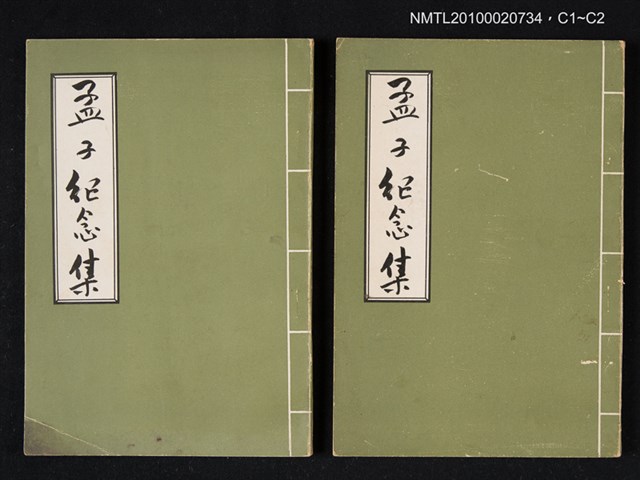 NMTL20100020734，C1~C2
孟子紀念集
孟子紀念集